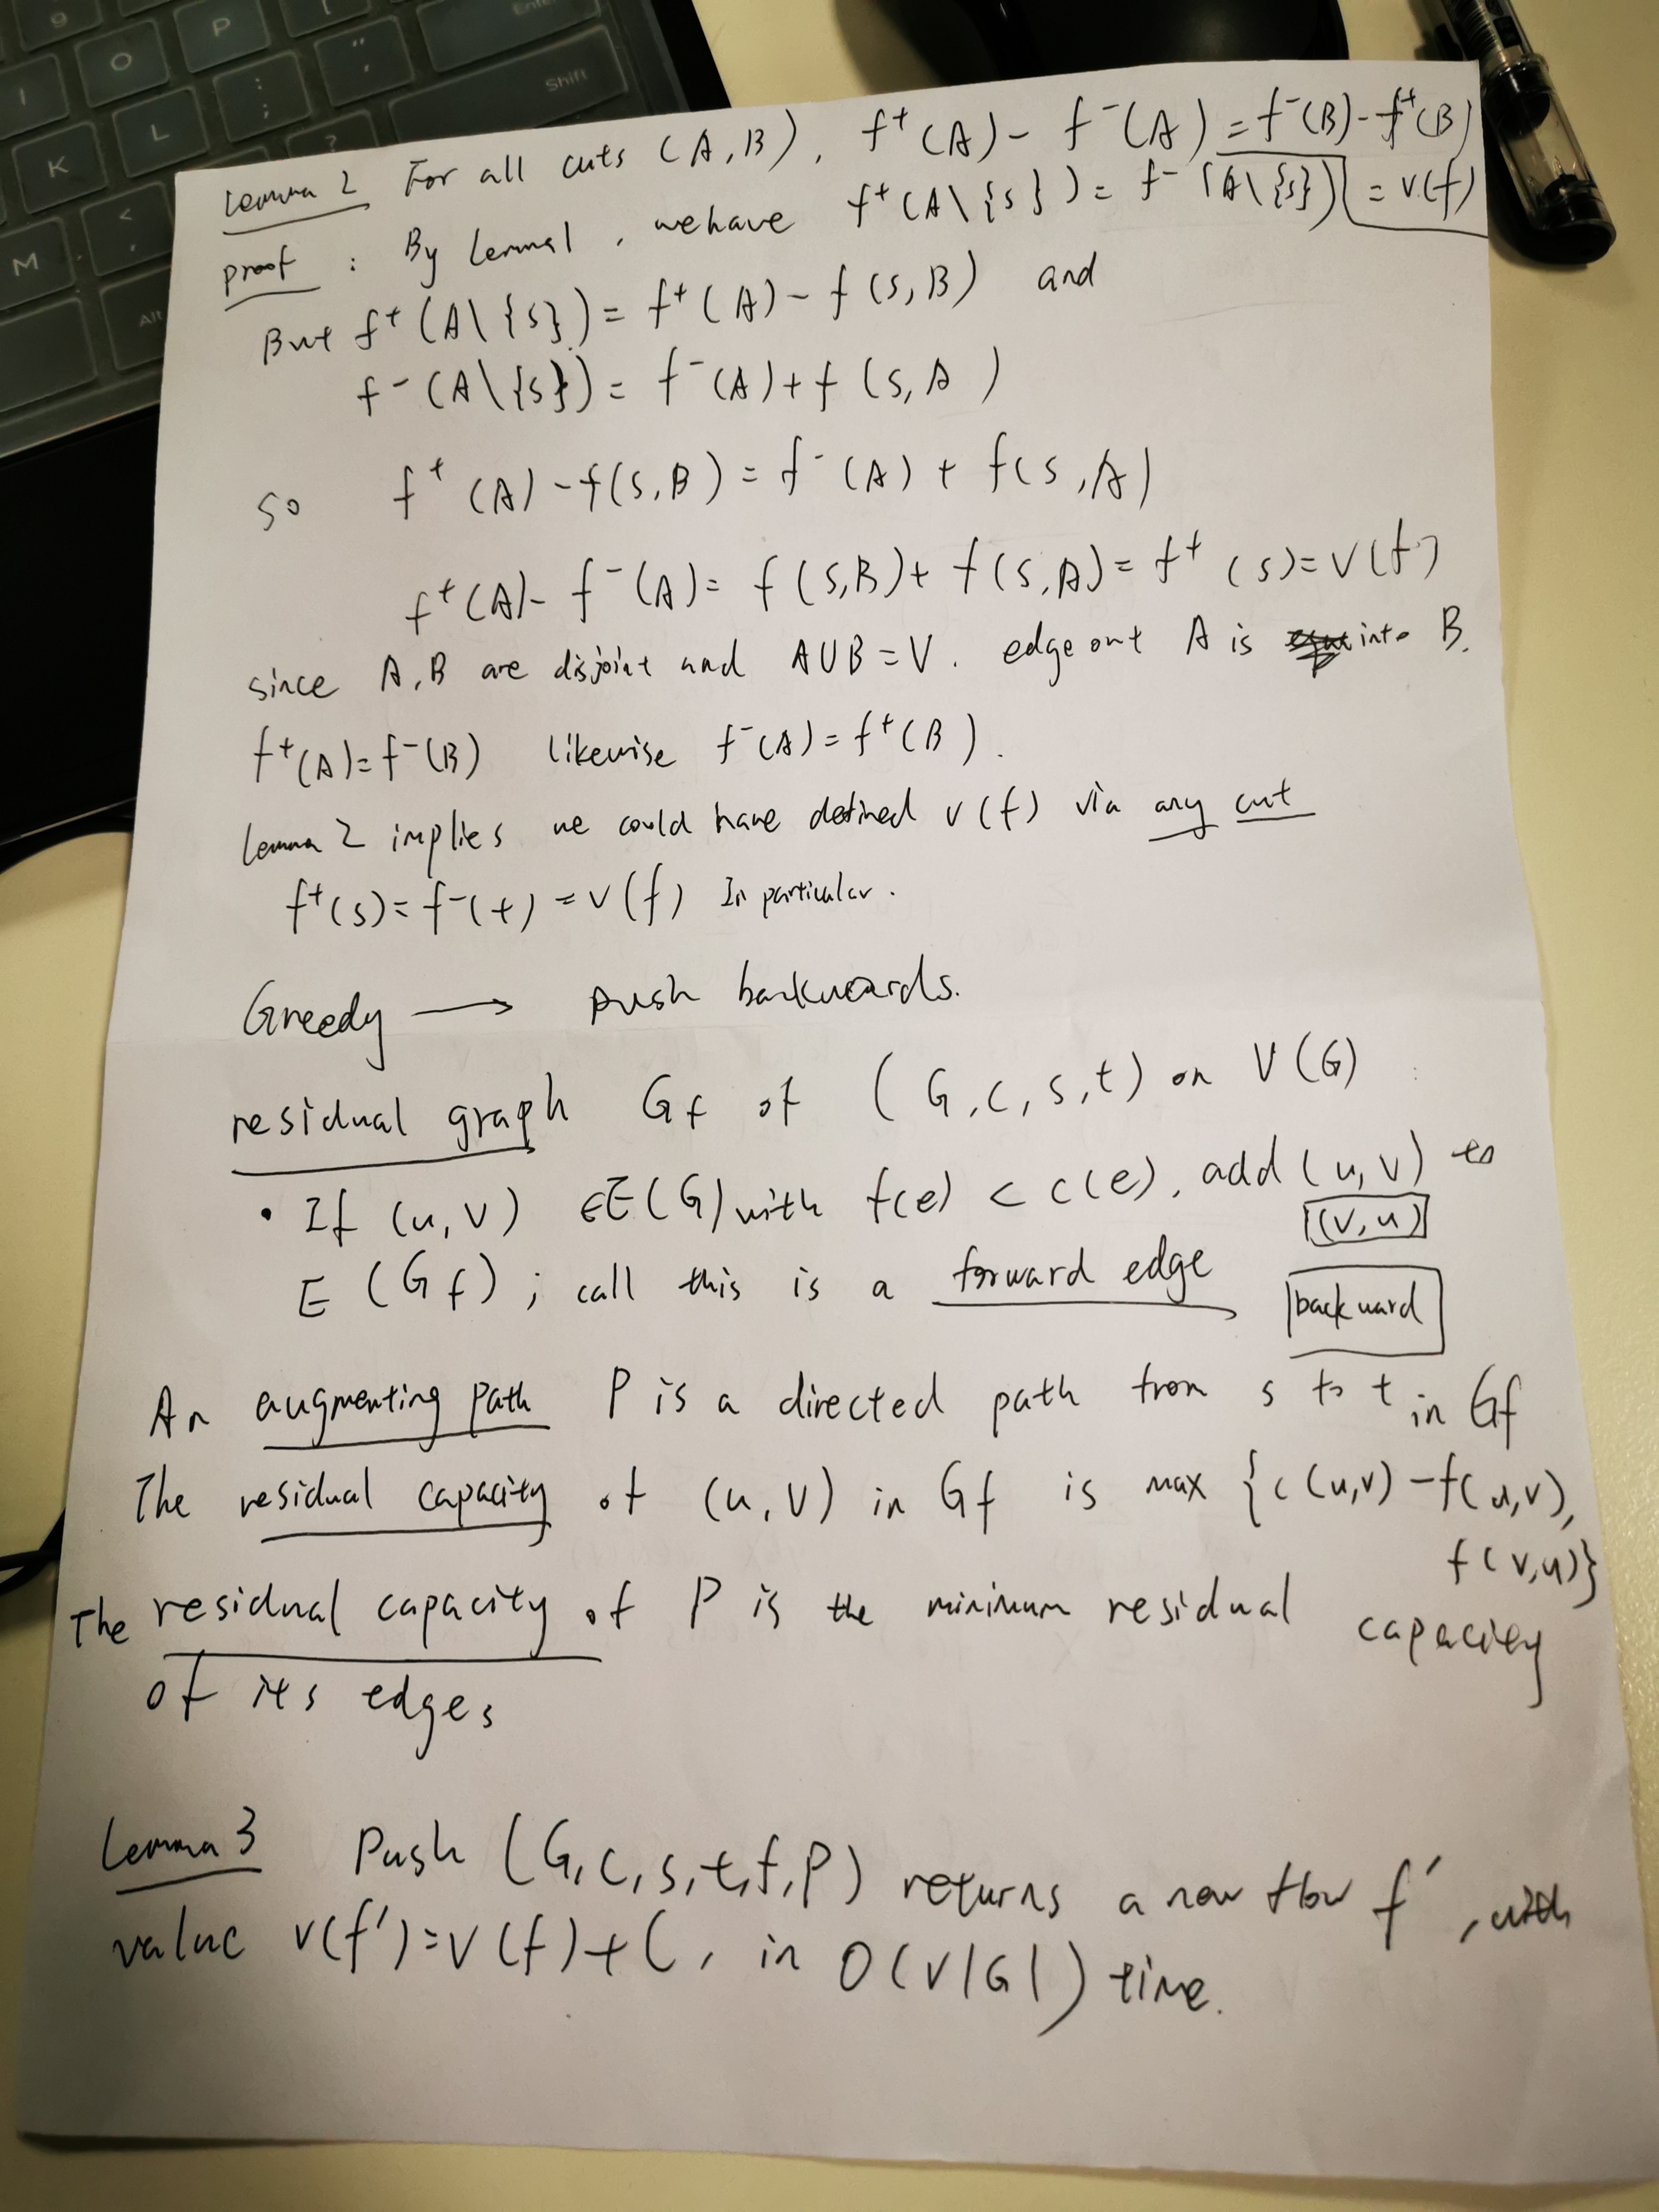 I
O
P
Enter
K
L
:
;
"
'
Shift
M
<
,
?
Alt
Lemma 2 For all cuts (A,B), f⁺(A) - f⁻(A) = f⁻(B) - f⁺(B)
= v(f)
proof : By Lemma 1, we have f⁺(A\{s}) = f⁻(A\{s})
But f⁺(A\{s}) = f⁺(A) - f(s,B) and
f⁻(A\{s}) = f⁻(A) + f(s,A)
so f⁺(A) - f(s,B) = f⁻(A) + f(s,A)
f⁺(A) - f⁻(A) = f(s,B) + f(s,A) = f⁺(s) = v(f)
since A,B are disjoint and A∪B = V. edge out A is into B.
f⁺(A) = f⁻(B) likewise f⁻(A) = f⁺(B).
Lemma 2 implies we could have defined v(f) via any cut
f⁺(s) = f⁻(t) = v(f) In particular.
Greedy → push backwards.
residual graph Gf of (G,c,s,t) on V(G)
• If (u,v) ∈E(G) with f(e) < c(e), add (u,v) to
(v,u)
E(Gf); call this is a forward edge
backward
An augmenting path P is a directed path from s to t in Gf
The residual capacity of (u,v) in Gf is max {c(u,v) - f(u,v),
f(v,u)}
The residual capacity of P is the minimum residual capacity
of its edges
Lemma 3 Push (G,c,s,t,f,P) returns a new flow f′, with
value v(f′) = v(f) + C, in O(V|G|) time.